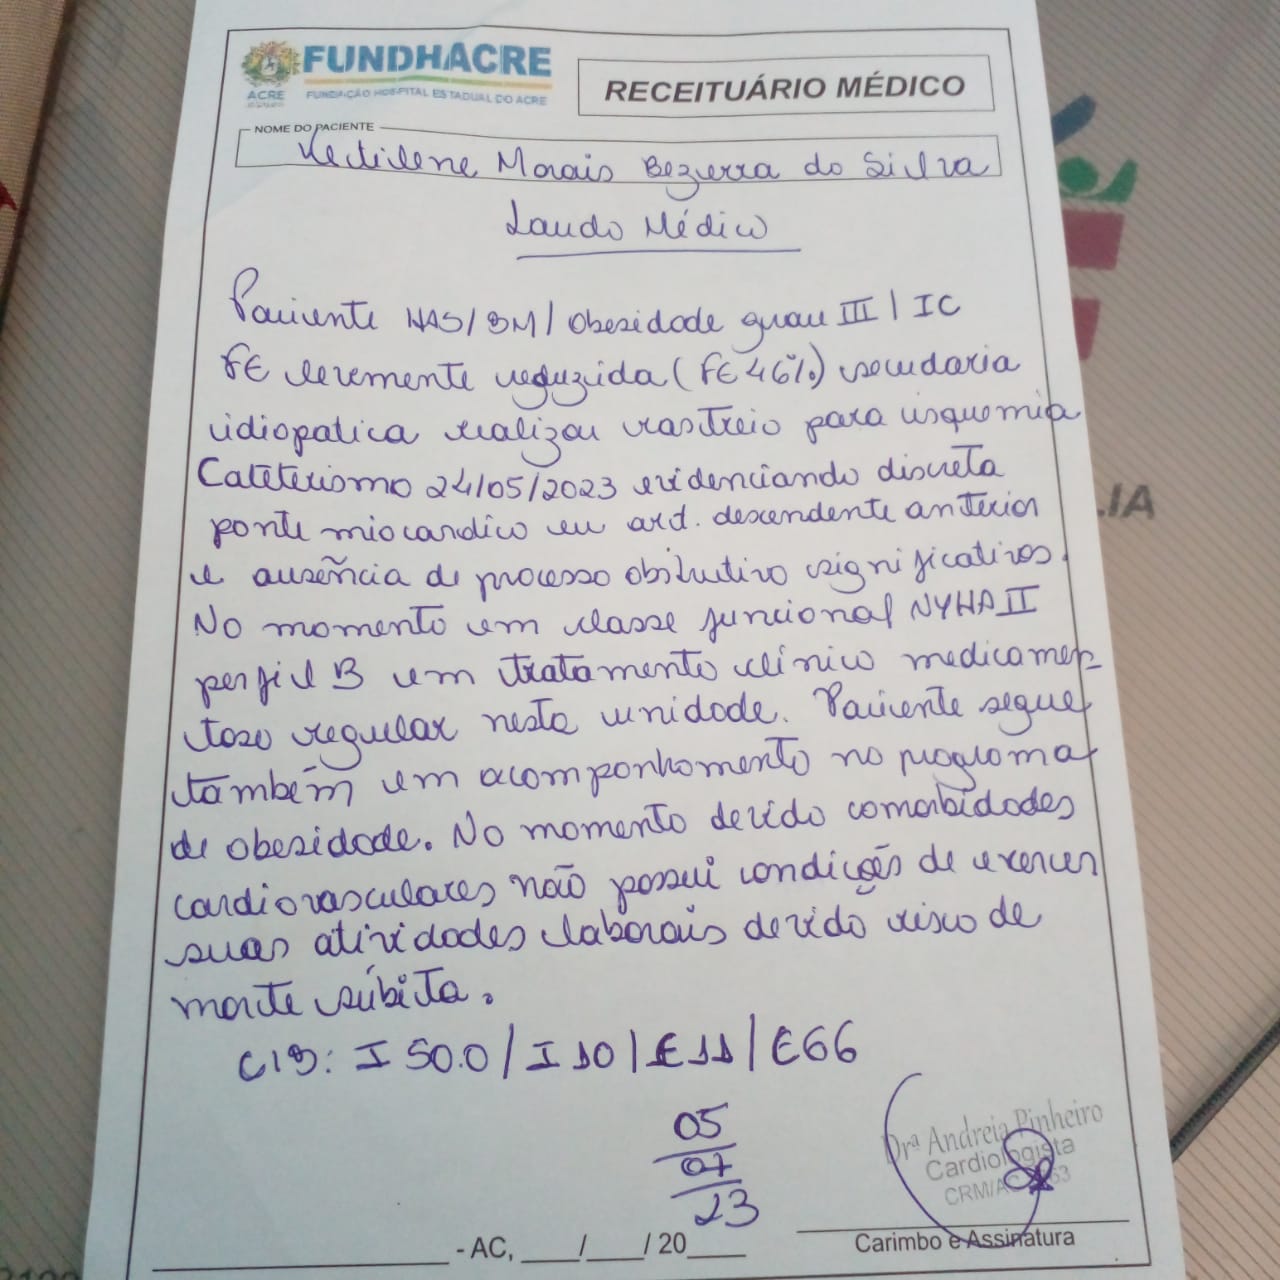 FUNDHACRE
ACRE
FUNDAÇÃO HOSPITAL ESTADUAL DO ACRE
RECEITUÁRIO MÉDICO
NOME DO PACIENTE
Morais Bezerra da Silva
Laudo Médico
Paciente HAS/DM/Obesidade grau III/IC
FE levemente reduzida (FE 46%) secudaria
idiopatica realizou rastreio para isquemia
Cateterismo 24/05/2023 evidenciando discreta
ponte miocardico em art. descendente anterior
e ausência de processo obstrutivo significativos.
No momento em classe funcional NYHA II
perfil B em tratamento clínico medicamen-
toso regular nesta unidade. Paciente segue
também em acompanhamento no programa
de obesidade. No momento devido comorbidades
cardiovasculares não possui condições de exercer
suas atividades laborais devido risco de
morte súbita.
CID: I50.0/I10/E11/E66
05
07
23
Drª Andreia Pinheiro
Cardiologista
CRM/AC
- AC, ____/____/20____
Carimbo e Assinatura
LIA